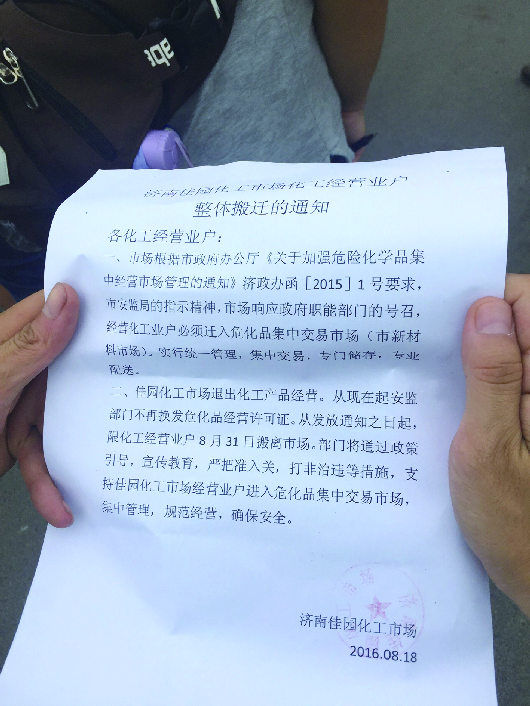 济南佳园化工市场化工经营业户
整体搬迁的通知
各化工经营业户：
一、市场根据市政府办公厅《关于加强危险化学品集
中经营市场管理的通知》济政办函［2015］1号要求，
市安监局的指示精神，市场响应政府职能部门的号召，
经营化工业户必须迁入危化品集中交易市场（市新材
料市场）。实行统一管理，集中交易，专门储存，专业
配送。
二、佳园化工市场退出化工产品经营。从现在起安监
部门不再换发危化品经营许可证。从发放通知之日起，
限化工经营业户8月31日搬离市场。部门将通过政策
引导，宣传教育，严把准入关，打非治违等措施，支
持佳园化工市场经营业户进入危化品集中交易市场，
集中管理，规范经营，确保安全。
济南佳园化工市场
2016.08.18